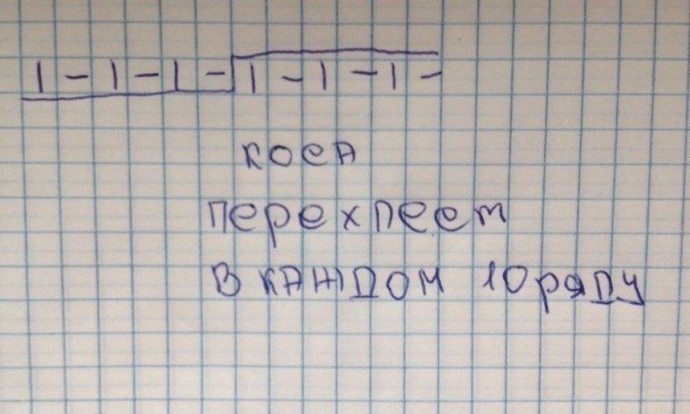 I - I - I - I - I - I -
коса
перехлест
в каждом 10 ряду